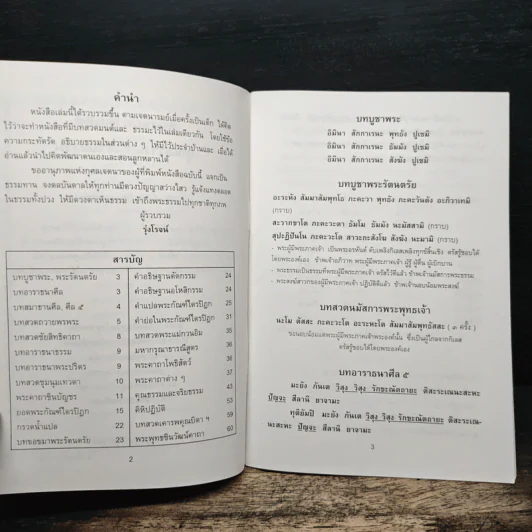 คำนำ
หนังสือเล่มนี้ได้รวบรวมขึ้น ตามเจตนารมย์เมื่อครั้งเป็นเด็ก ได้คิด
ไว้ว่าจะทำหนังสือที่มีบทสวดมนต์และ ธรรมะไว้ในเล่มเดียวกัน โดยใช้ข้อ
ความกระทัดรัด อธิบายธรรมในส่วนต่าง ๆ ให้มีไว้ประจำบ้านและ เมื่อได้
อ่านแล้วนำไปคิดพัฒนาตนเองและสอนลูกหลานได้
ขออานุภาพแห่งกุศลเจตนาของผู้ที่พิมพ์หนังสือฉบับนี้ แจกเป็น
ธรรมทาน จงดลบันดาลให้ทุกท่านมีดวงปัญญาสว่างไสว รู้แจ้งแทงตลอด
ในธรรมทั้งปวง ให้มีดวงตาเห็นธรรม เข้าถึงพระธรรมไปทุกชาติทุกภพ
ผู้รวบรวม
รุ่งโรจน์
สารบัญ
บทบูชาพระ, พระรัตนตรัย 3
บทอาราธนาศีล 3
บทสมาทานศีล, ศีล ๕ 4
บทสวดถวายพรพระ 5
บทสวดชัยสิทธิคาถา 9
บทอาราธนาธรรม 9
บทอาราธนาพระปริตร 9
บทสวดชุมนุมเทวดา 10
พระคาถาชินบัญชร 11
ยอดพระกัณฑ์ไตรปิฎก 15
กรวดน้ำแปล 22
บทขอขมาพระรัตนตรัย 23
คำอธิษฐานตัดกรรม 24
คำอธิษฐานอโหสิกรรม 24
คำแปลพระกัณฑ์ไตรปิฎก 25
คำย่อในพระกัณฑ์ไตรปิฎก 31
บทสวดพระแม่กวนอิม 32
มหากรุณาธารณีสูตร 33
พระคาถาโพธิสัตว์ 34
พระคาถาต่าง ๆ 34
คุณธรรมและจริยธรรม 41
ดิถีปฏิบัติ 50
บทสวดเคารพคุณบิดา ฯ 59
พระพุทธชินวัฒน์คาถา 60
2
บทบูชาพระ
อิมินา สักกาเรนะ พุทธัง ปูเชมิ
อิมินา สักกาเรนะ ธัมมัง ปูเชมิ
อิมินา สักกาเรนะ สังฆัง ปูเชมิ
บทบูชาพระรัตนตรัย
อะระหัง สัมมาสัมพุทโธ ภะคะวา พุทธัง ภะคะวันตัง อะภิวาเทมิ
(กราบ)
สะวากขาโต ภะคะวะตา ธัมโม ธัมมัง นะมัสสามิ (กราบ)
สุปะฏิปันโน ภะคะวะโต สาวะกะสังโฆ สังฆัง นะมามิ (กราบ)
- พระผู้มีพระภาคเจ้า เป็นพระอรหันต์ ดับเพลิงกิเลสเพลิงทุกข์สิ้นเชิง ตรัสรู้ชอบได้
โดยพระองค์เอง, ข้าพเจ้าอภิวาท พระผู้มีพระภาคเจ้า ผู้รู้ ผู้ตื่น ผู้เบิกบาน
- พระธรรมเป็นธรรมที่พระผู้มีพระภาคเจ้า ตรัสไว้ดีแล้ว ข้าพเจ้านมัสการพระธรรม
- พระสงฆ์สาวกของพระผู้มีพระภาคเจ้า ปฏิบัติดีแล้ว ข้าพเจ้านอบน้อมพระสงฆ์
บทสวดนมัสการพระพุทธเจ้า
นะโม ตัสสะ ภะคะวะโต อะระหะโต สัมมาสัมพุทธัสสะ ( ๓ ครั้ง )
ขอนอบน้อมแด่พระผู้มีพระภาคเจ้าพระองค์นั้น ซึ่งเป็นผู้ไกลจากกิเลส
ตรัสรู้ชอบได้โดยพระองค์เอง
บทอาราธนาศีล ๕
มะยัง ภันเต วิสุง วิสุง รักขะณัตถายะ ติสะระเณนะสะหะ
ปัญจะ สีลานิ ยาจามะ
ทุติยัมปิ มะยัง ภันเต วิสุง วิสุง รักขะณัตถายะ ติสะระเณ-
นะสะหะ ปัญจะ สีลานิ ยาจามะ
3